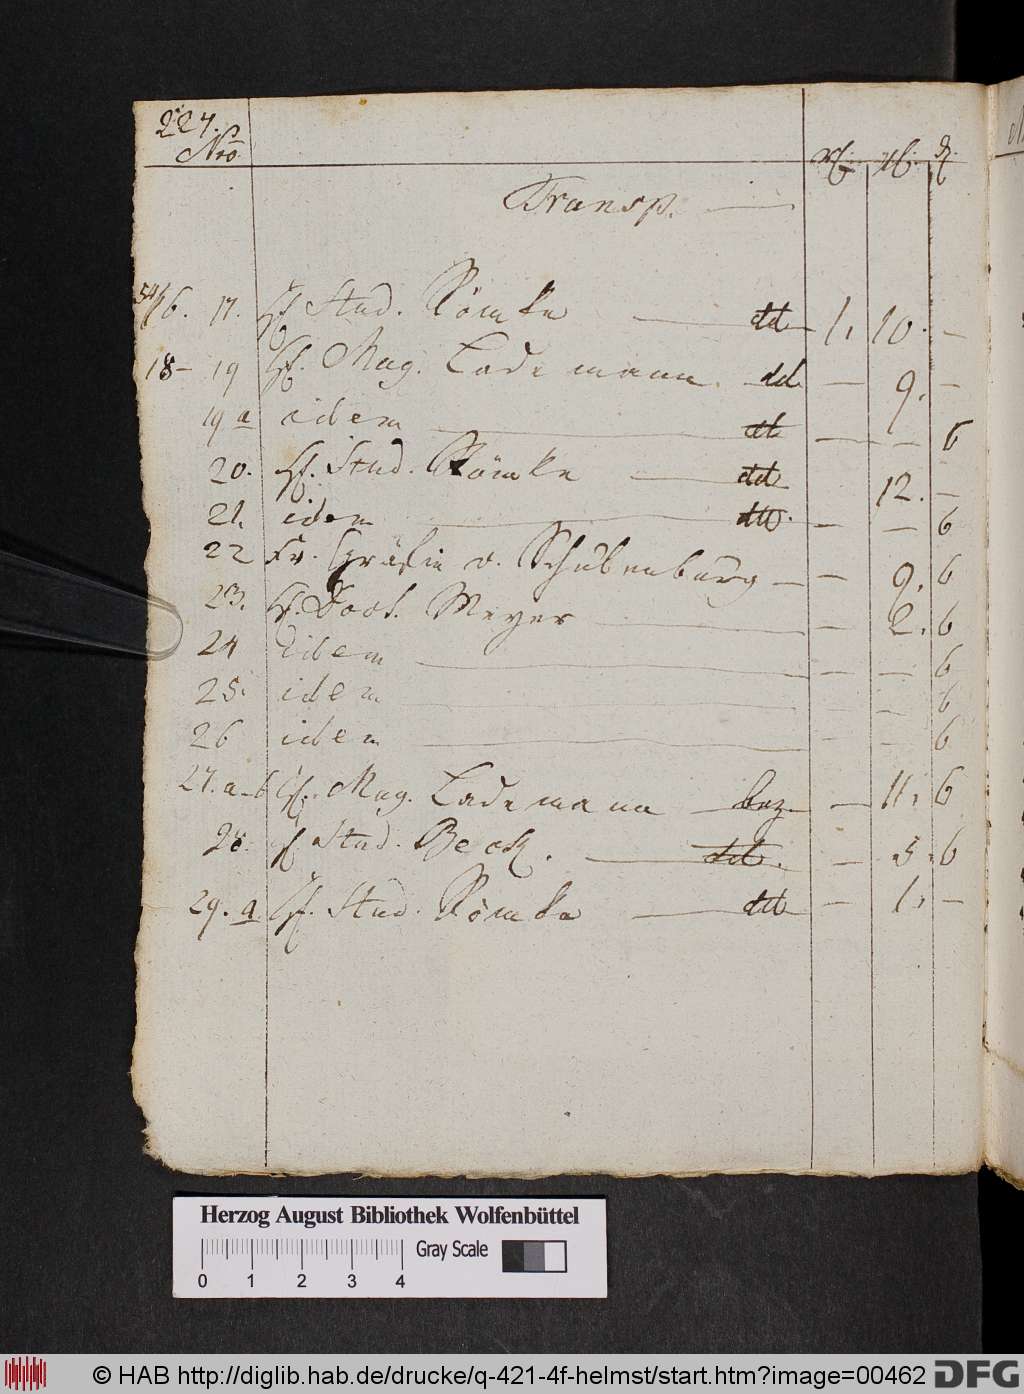 227.
Nro.
Transp.
16. 17. H. Stud. Römke dd 1. 10. —
18 – 19 H. Mag. Lademann dd. — 9. —
19 a idem dd — — 6
20. H. Stud. Römke dd 12. —
21. idem dd. — — 6
22 Fr. Gräfin v. Schulenburg — — 9. 6
23. H. Doct. Meyer — 2. 6
24 idem — — 6
25. idem — — 6
26 idem — — 6
27. a–b H. Mag. Lademann bez. — 11. 6
28. H. Stud. Beck. dd. — 5. 6
29. a H. Stud. Römke dd — 1. —
Herzog August Bibliothek Wolfenbüttel
Gray Scale
0 1 2 3 4
© HAB http://diglib.hab.de/drucke/q-421-4f-helmst/start.htm?image=00462 DFG